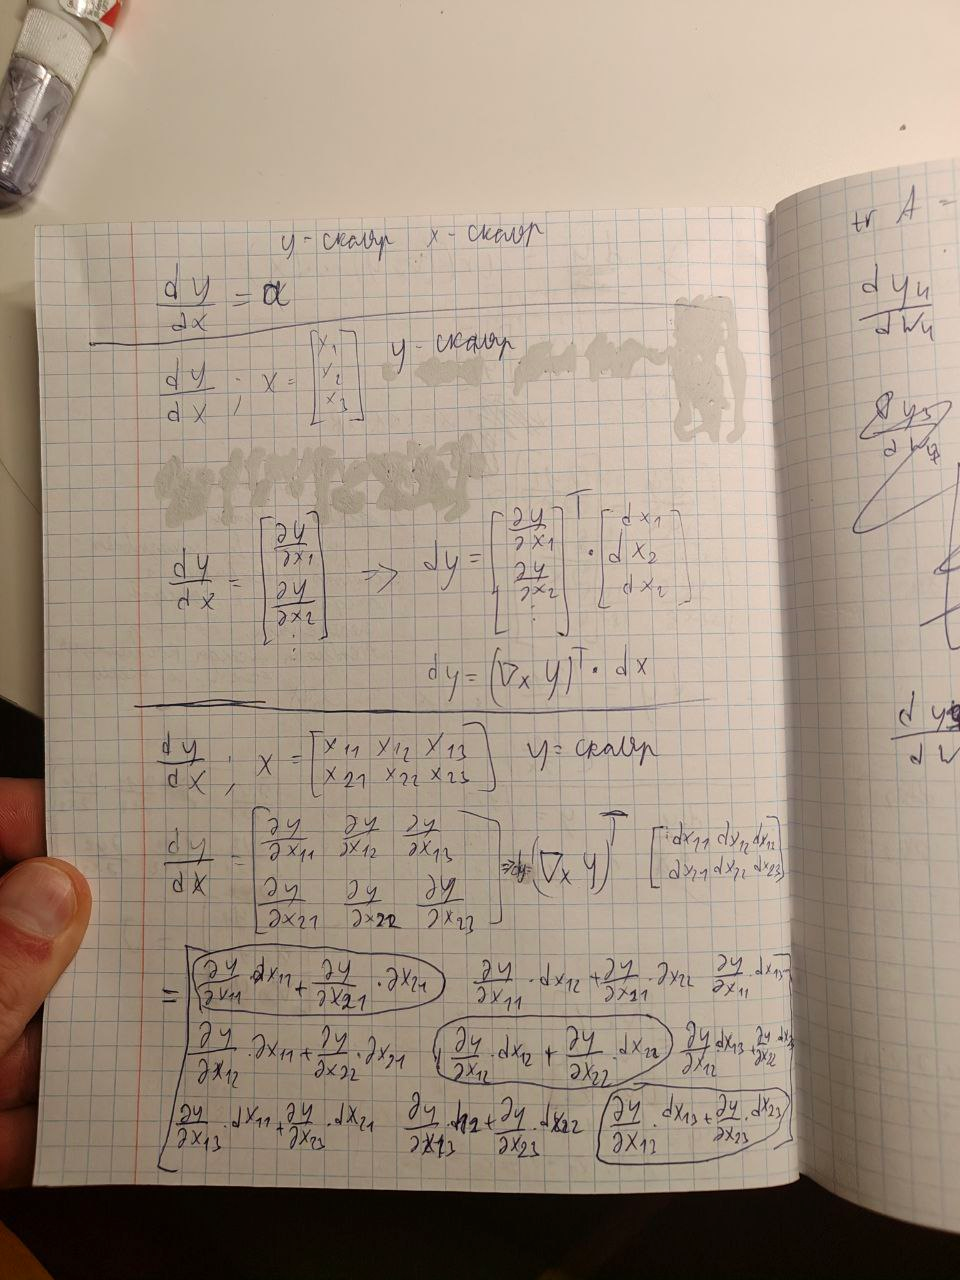 y - скаляр x - скаляр
dy/dx = α
dy/dx ; x = [x1 x2 x3] y - скаляр
dy/dx = [∂y/∂x1 ∂y/∂x2 ⋮] => dy = [∂y/∂x1 ∂y/∂x2 ⋮]^T · [dx1 dx2 dx2]
dy = (∇x y)^T · dx
dy/dx ; x = [x11 x12 x13 x21 x22 x23] y = скаляр
dy/dx = [∂y/∂x11 ∂y/∂x12 ∂y/∂x13 ∂y/∂x21 ∂y/∂x22 ∂y/∂x23] => dy = (∇x y)^T [dx11 dx12 dx12 dx21 dx22 dx23]
= [∂y/∂x11 · dx11 + ∂y/∂x21 · ∂x21 ∂y/∂x11 · dx12 + ∂y/∂x21 · ∂x22 ∂y/∂x11 · dx13
∂y/∂x12 · ∂x11 + ∂y/∂x22 · ∂x21 ∂y/∂x12 · dx12 + ∂y/∂x22 · dx22 ∂y/∂x12 · dx13 + ∂y/∂x22
∂y/∂x13 · dx11 + ∂y/∂x23 · dx21 ∂y/∂x13 · + ∂y/∂x23 · dx22 ∂y/∂x13 · dx13 + ∂y/∂x23 · dx23]
tr A =
dy4/dW4
dy